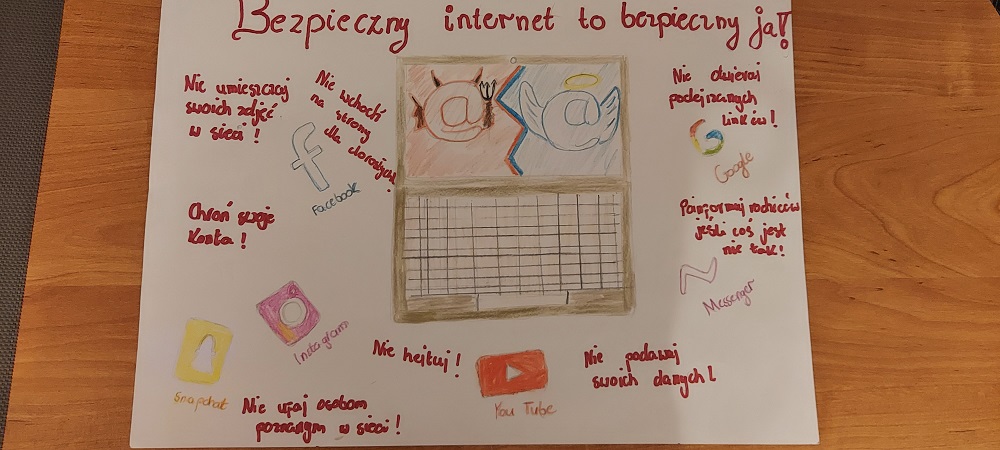 Bezpieczny internet to bezpieczny ja!
Nie umieszczaj
swoich zdjęć
w sieci!
Nie wchodź
na strony
dla dorosłych!
Facebook
Chroń swoje
Konta!
Instagram
Snapchat
Nie ufaj osobom
poznanym w sieci!
Nie hejtuj!
You Tube
Nie podawaj
swoich danych!
Nie otwieraj
podejrzanych
linków!
Google
Poinformuj rodziców
jeśli coś jest
nie tak!
Messenger
@
@